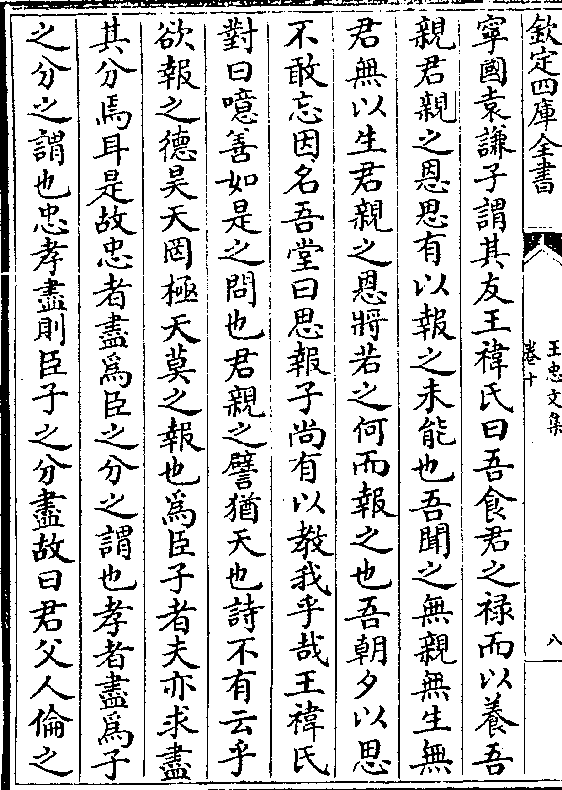 欽定四庫全書
王忠文集
卷十
八
寧國袁謙子謂其友王禕氏曰吾食君之祿而以養吾
親君親之恩思有以報之未能也吾聞之無親無生無
君無以生君親之恩將若之何而報之也吾朝夕以思
不敢忘因名吾堂曰思報子尚有以教我乎哉王禕氏
對曰噫善如是之問也君親之譬猶天也詩不有云乎
欲報之德昊天罔極天莫之報也為臣子者夫亦求盡
其分焉耳是故忠者盡為臣之分之謂也孝者盡為子
之分之謂也忠孝盡則臣子之分盡故曰君父人倫之